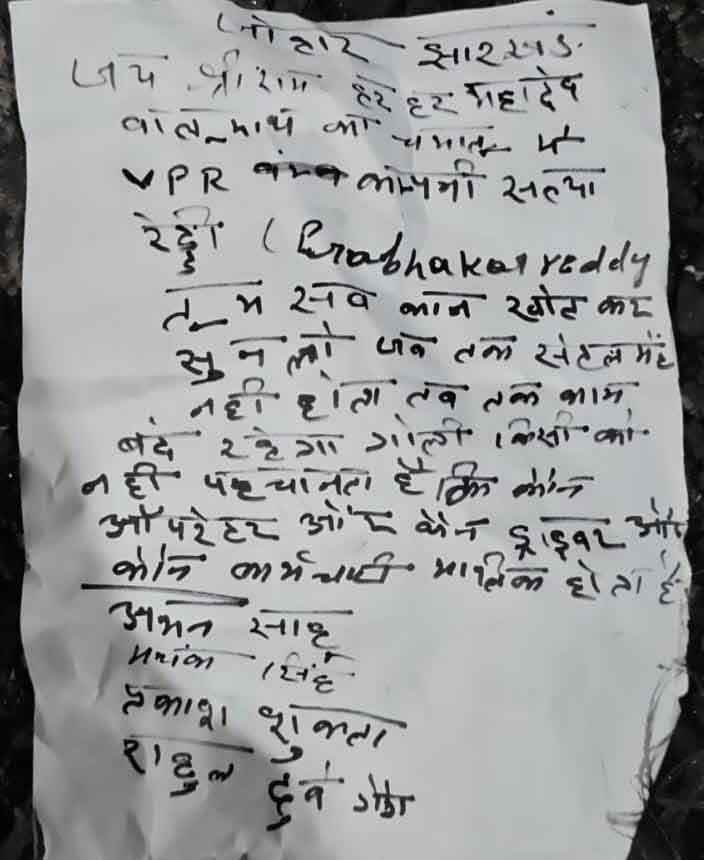 जोहार झारखंड
जय श्री राम हर हर महादेव
का
VPR कम्पनी सत्या
रेड्डी (Prabhakar reddy
तुम सब कान खोल कर
सुन लो जब तक सेटलमेंट
नही होता तब तक काम
बंद रहेगा गोली किसी को
नही पहचानता है कि कौन
ऑपरेटर और कौन ड्राइवर और
कौन कर्मचारी मालिक होता है
अमन साहू
मयंक सिंह
प्रकाश शुक्ला
राहुल दुबे गैंग